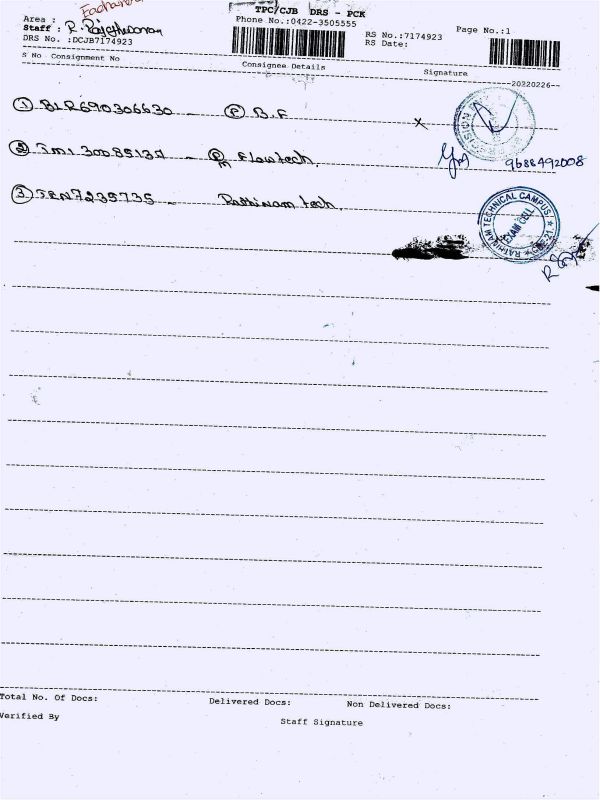 TPC/CJB DRS - PCK
Area :
Phone No.:0422-3505555
Page No.:1
Staff : R.
RS No.:7174923
DRS No. :DCJB7174923
RS Date:
S No Consignment No
Consignee Details
Signature
20220226
① BLR690306630 - Ⓟ B.F
x
② - Flowtech.
9688492008
③ - Rathinam tech.
RATHINAM TECHNICAL CAMPUS
EXAM CELL
Total No. Of Docs:
Delivered Docs:
Non Delivered Docs:
Verified By
Staff Signature